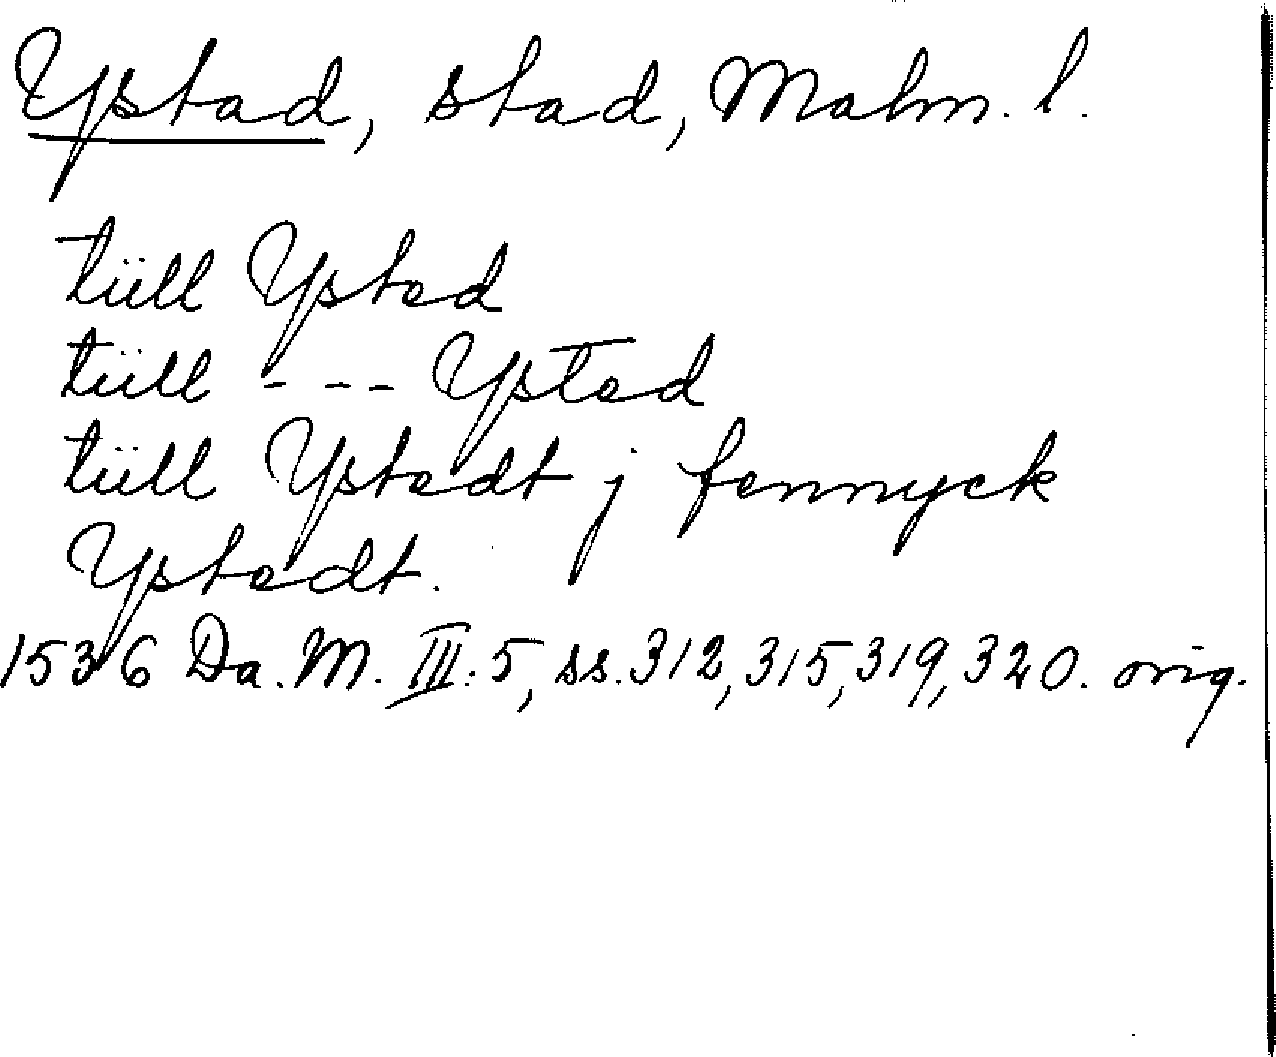 Ystad, stad, Malm. l.
tüll Ysted
tüll - - - Ysted
tüll Ystedt j fennyck
Ystedt.
1536 Da. M. III: 5, ss. 312, 315, 319, 320. orig.